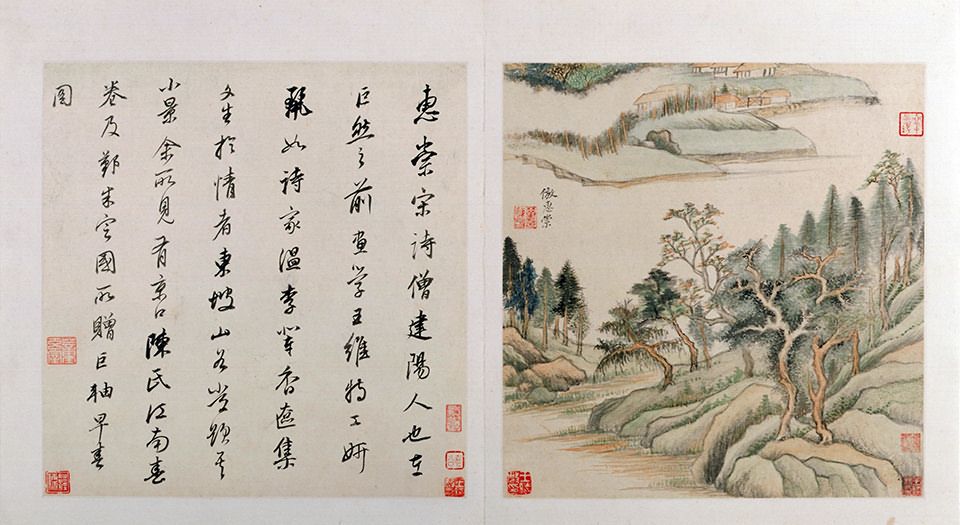 倣惠崇
惠崇宋詩僧建陽人也在
巨然之前畫學王維特工妍
如詩家溫李輩香奩集
文生於情者東坡山谷嘗題其
小景余所見有京口陳氏江南春
卷及鄭國所贈巨軸早春
圖